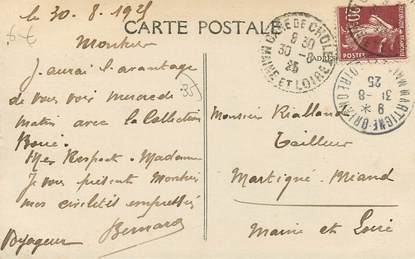 le 30. 8. 1925
CARTE POSTALE
Monsieur
J'aurai l'avantage
de vous voir mercredi
matin avec la Collection
Mes Respects à Madame
Je vous présente Monsieur
mes civilités empressées
Bernard
Voyageur
GARE DE CHOLET
8 30
30 - 8
25
MAINE ET LOIRE
MARTIGNÉ-BRIAND
9 *
31 - 8
25
POSTES
Monsieur Rialland
Tailleur
Martigné-Briand
Maine et Loire